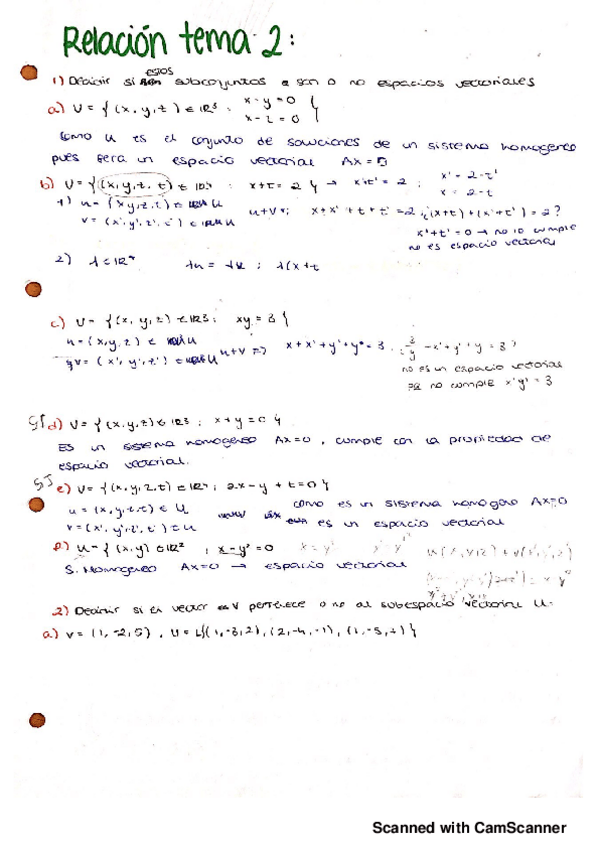 Relación tema 2:
1) Decidir si estos subconjuntos son o no espacios vectoriales
a) U = { (x, y, t) ∈ IR3 : x-y=0
x-z=0 }
Como U es el conjunto de soluciones de un sistema homogeneo
pues sera un espacio vectorial Ax=0
b) U = { (x,y,z,t) ∈ IR4 : x+t=2 } → x'+t'=2 ; x'=2-t'
x=2-t
1) u = (x,y,z,t) ∈ U
v = (x',y',z',t') ∈ U
u+v ; x+x'+t+t'=2 ; (x+t)+(x'+t')=2?
x'+t'=0 → no lo cumple
no es espacio vectorial
2) λ ∈ IR
λu = λx ; λ(x+t
c) U = { (x,y,z) ∈ IR3 : xy=3 }
u = (x,y,z) ∈ U
v = (x',y',z') ∈ U
u+v => x+x'+y+y'=3
no es un espacio vectorial
no cumple x'y'=3
SI d) U = { (x,y,z) ∈ IR3 ; x+y=0 }
Es un sistema homogeneo Ax=0, cumple con la propiedad de
espacio vectorial.
SI e) U = { (x,y,z,t) ∈ IR4 ; 2x-y+t=0 }
u = (x,y,z,t) ∈ U
v = (x',y',z',t') ∈ U
como es un sistema homogeno Ax=0
es un espacio vectorial
f) U = { (x,y) ∈ IR2 ; x-y=0
S. Homogeneo Ax=0 → espacio vectorial
2) Decidir si el vector v pertenece o no al subespacio vectorial U.
a) v = (1,-2,5), U = L{(1,-3,2), (2,-4,-1), (1,-5,7)}
Scanned with CamScanner